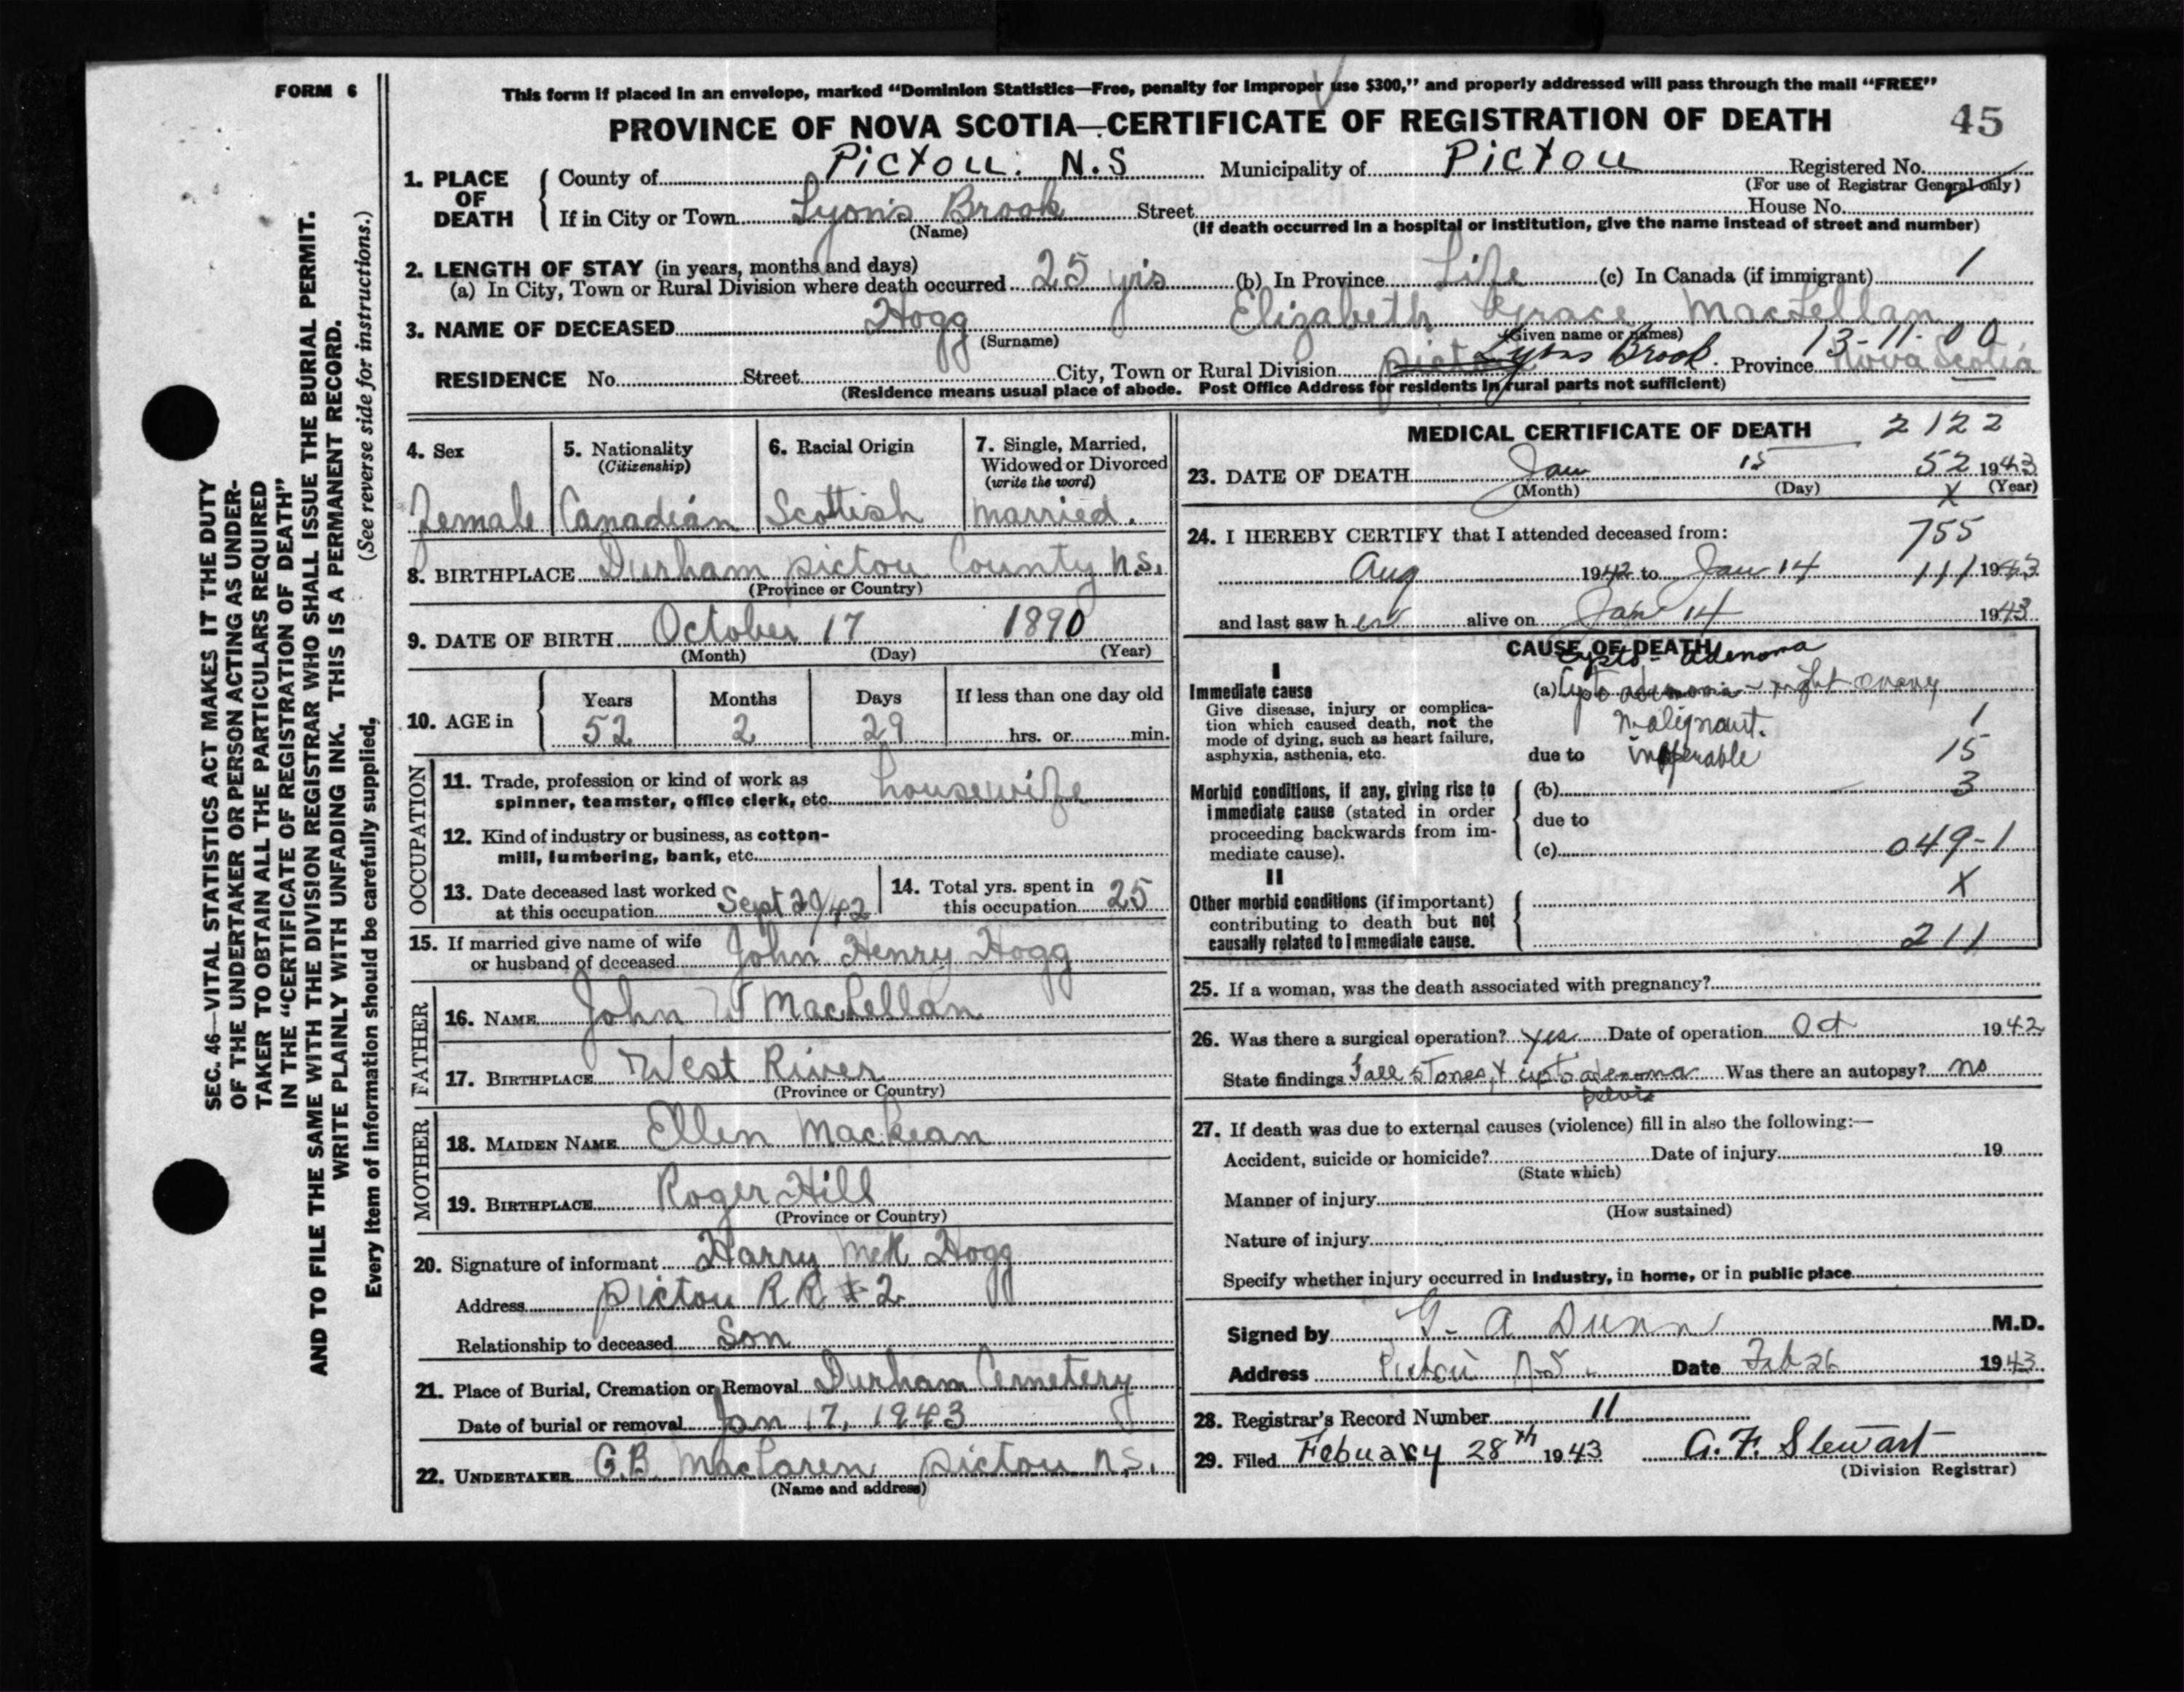 FORM 6
This form if placed in an envelope, marked “Dominion Statistics—Free, penalty for improper use $300,” and properly addressed will pass through the mail “FREE”
PROVINCE OF NOVA SCOTIA—CERTIFICATE OF REGISTRATION OF DEATH
45
SEC. 46—VITAL STATISTICS ACT MAKES IT THE DUTY
OF THE UNDERTAKER OR PERSON ACTING AS UNDER-
TAKER TO OBTAIN ALL THE PARTICULARS REQUIRED
IN THE “CERTIFICATE OF REGISTRATION OF DEATH”
AND TO FILE THE SAME WITH THE DIVISION REGISTRAR WHO SHALL ISSUE THE BURIAL PERMIT.
WRITE PLAINLY WITH UNFADING INK. THIS IS A PERMANENT RECORD.
(See reverse side for instructions.)
Every item of information should be carefully supplied,
1. PLACE OF DEATH
County of Pictou. N.S Municipality of Pictou Registered No.
(For use of Registrar General only)
If in City or Town Lyons Brook Street House No.
(Name) (If death occurred in a hospital or institution, give the name instead of street and number)
2. LENGTH OF STAY (in years, months and days)
(a) In City, Town or Rural Division where death occurred 25 yrs (b) In Province Life (c) In Canada (if immigrant) /
3. NAME OF DECEASED Hogg Elizabeth Grace MacLellan
(Surname) (Given name or names) 13-11-00
RESIDENCE No. Street City, Town or Rural Division Pictou Lyons Brook. Province Nova Scotia
(Residence means usual place of abode. Post Office Address for residents in rural parts not sufficient)
4. Sex
Female
5. Nationality
(Citizenship)
Canadian
6. Racial Origin
Scottish
7. Single, Married,
Widowed or Divorced
(write the word)
Married.
8. BIRTHPLACE Durham Pictou County N.S.
(Province or Country)
9. DATE OF BIRTH October 17 1890
(Month) (Day) (Year)
10. AGE in
Years Months Days If less than one day old
52 2 29 hrs. or min.
OCCUPATION
11. Trade, profession or kind of work as
spinner, teamster, office clerk, etc. housewife
12. Kind of industry or business, as cotton-
mill, lumbering, bank, etc.
13. Date deceased last worked
at this occupation Sept 29/42
14. Total yrs. spent in
this occupation 25
15. If married give name of wife
or husband of deceased John Henry Hogg
FATHER
16. NAME John W MacLellan
17. BIRTHPLACE West River
(Province or Country)
MOTHER
18. MAIDEN NAME Ellen MacKean
19. BIRTHPLACE Roger Hill
(Province or Country)
20. Signature of informant Harry McK Hogg
Address Pictou R R # 2
Relationship to deceased Son
21. Place of Burial, Cremation or Removal Durham Cemetery
Date of burial or removal Jan 17, 1943
22. UNDERTAKER G.B. MacLaren Pictou N.S.
(Name and address)
MEDICAL CERTIFICATE OF DEATH 2122
23. DATE OF DEATH Jan 15 52 1943
(Month) (Day) X (Year)
24. I HEREBY CERTIFY that I attended deceased from: 755
Aug 1942 to Jan 14 111 1943
and last saw her alive on Jan 14 1943
CAUSE OF DEATH
I
Immediate cause
Give disease, injury or complica-
tion which caused death, not the
mode of dying, such as heart failure,
asphyxia, asthenia, etc.
Cysto-adenoma
(a) Cysto adenoma - right ovary
malignant. 1
due to inoperable 15
Morbid conditions, if any, giving rise to
immediate cause (stated in order
proceeding backwards from im-
mediate cause).
(b) 3
due to
(c) 049-1
II
Other morbid conditions (if important)
contributing to death but not
causally related to immediate cause.
X
211
25. If a woman, was the death associated with pregnancy?
26. Was there a surgical operation? Yes. Date of operation Oct 1942
State findings Gall stones, & cysto adenoma Was there an autopsy? no
pelvis
27. If death was due to external causes (violence) fill in also the following:—
Accident, suicide or homicide? Date of injury 19
(State which)
Manner of injury
(How sustained)
Nature of injury
Specify whether injury occurred in industry, in home, or in public place
Signed by G. A Dunn M.D.
Address Pictou N.S. Date Feb 26 1943
28. Registrar's Record Number 11
29. Filed Febuary 28th 1943 G. F. Stewart
(Division Registrar)